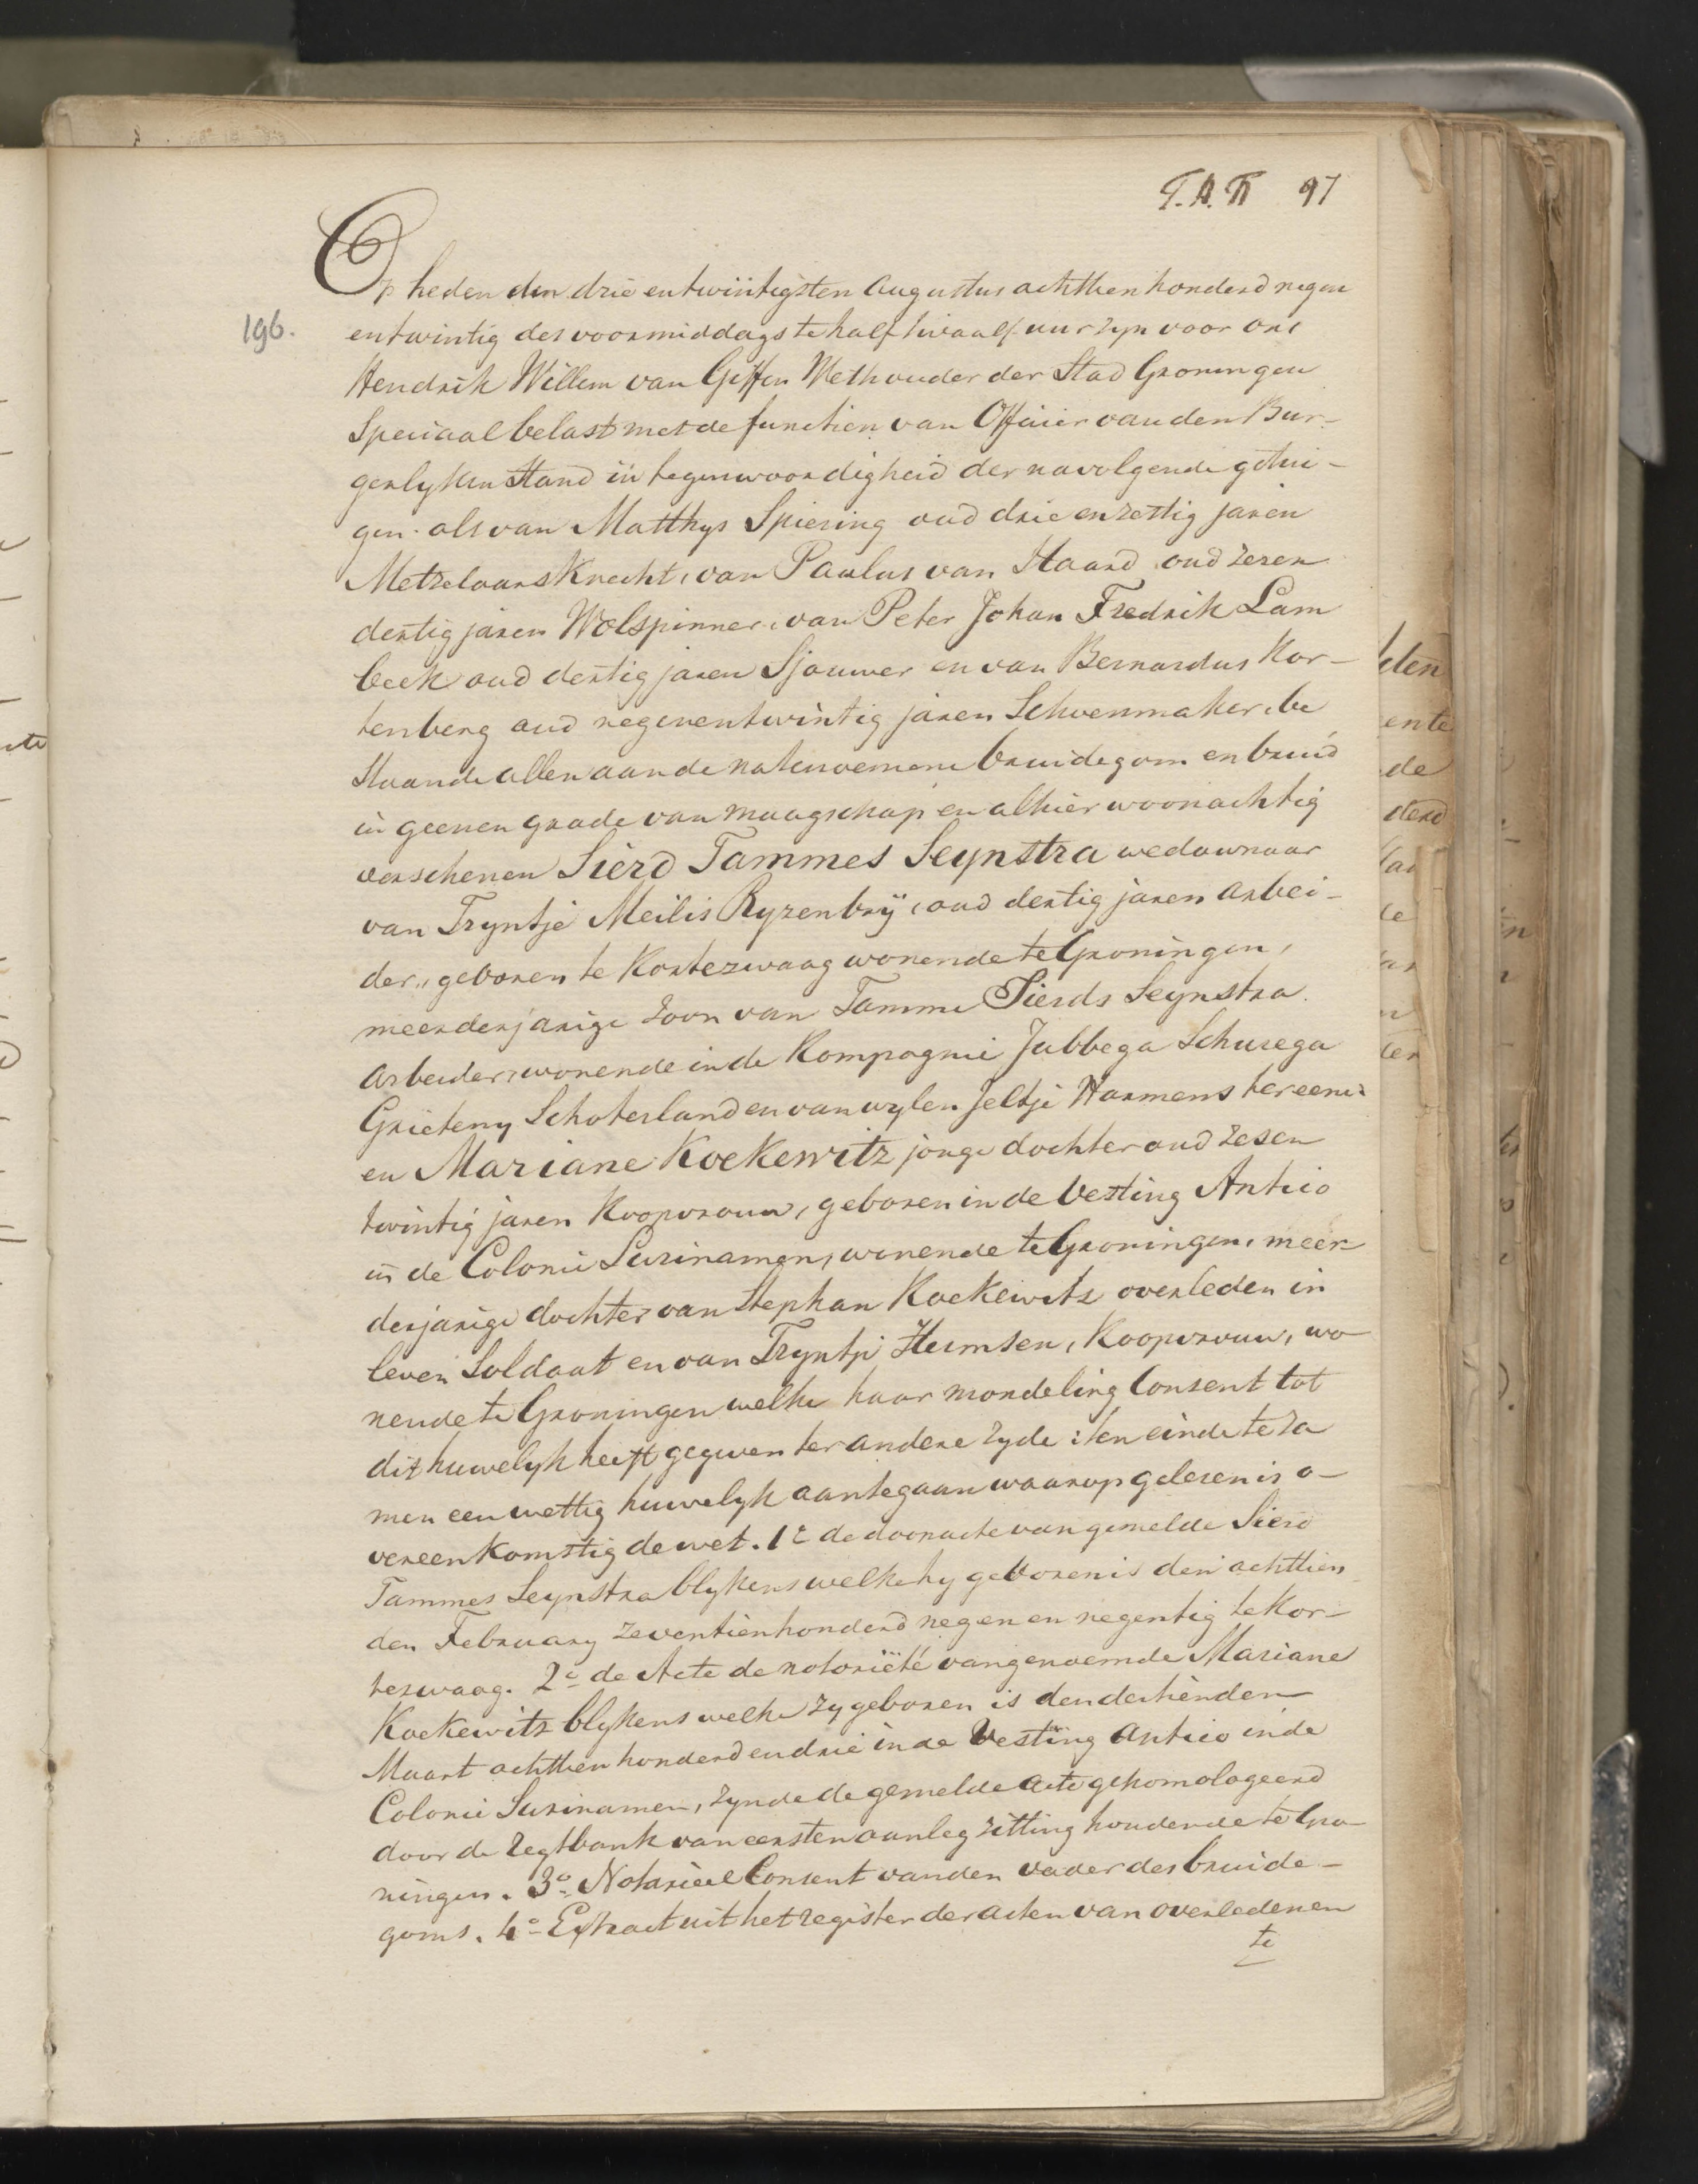 97
196.
Op heden den drie entwintigsten Augustus achttien honderd negen
entwintig des voormiddags te half twaalf uur zyn voor ons
Hendrik Willem van Giffen Wethouder der Stad Groningen
Speciaal belast met de functien van Officier van den Bur-
gerlyken Stand in tegenwoordigheid der navolgende getui-
gen. als van Matthys Spiering oud drie en zestig jaren
Metzelaars Knecht, van Paulus van Haard oud zesen
dertig jaren Wolspinner, van Peter Johan Fredrik Lam
beek oud dertig jaren Sjouwer en van Bernardus Kor-
tenberg oud negenentwintig jaren Schoenmaker, be
staande allen aan de natenoemene bruidegom en bruid
in geenen grade van maagschap en alhier woonachtig
verschenen Sierd Tammes Seynstra wedownaar
van Tryntje Meilis Ryzenbrÿ, oud dertig jaren arbei-
der, geboren te Kortezwaag wonende te Groningen,
meerderjarige zoon van Tamme Sierds Seynstra
Arbeider, wonende in de Kompagnie Jubbega Schurega
Grieteny Schoterland en van wylen Jeltje Harmens ter eene:
en Mariane Koekewitz jonge dochter oud zesen
twintig jaren Koopvrouw, geboren in de Vesting Antico
in de Colonie Surinamen, wonende te Groningen, meer
derjarige dochter van Stephan Koekewitz overleden in
leven Soldaat en van Tryntje Heimsen, Koopvrouw, wo
nende te Groningen welke haar mondeling Consent tot
dit huwelyk heeft gegeven ter andere zyde: ten einde te za
men een wettig huwelyk aantegaan waarop gelesen is o-
vereenkomstig de wet. 1e de doopacte van gemelde Sierd
Tammes Seynstra blykens welke hy geboren is den achttien
den February zeventienhonderd negen en negentig te Kor-
tezwaag. 2e de Acte de notoriëté van genoemde Mariane
Koekewitz blykens welke zy geboren is den dertienden
Maart achttien honderd en drie in de Vesting Antico in de
Colonie Surinamen, zynde de gemelde acte gehomologeerd
door de Regtbank van eersten aanleg zitting houdende te Gro-
ningen. 3o Notariëel Consent van den vader des bruide-
goms. 4o Extract uit het register der acten van overledenen
te